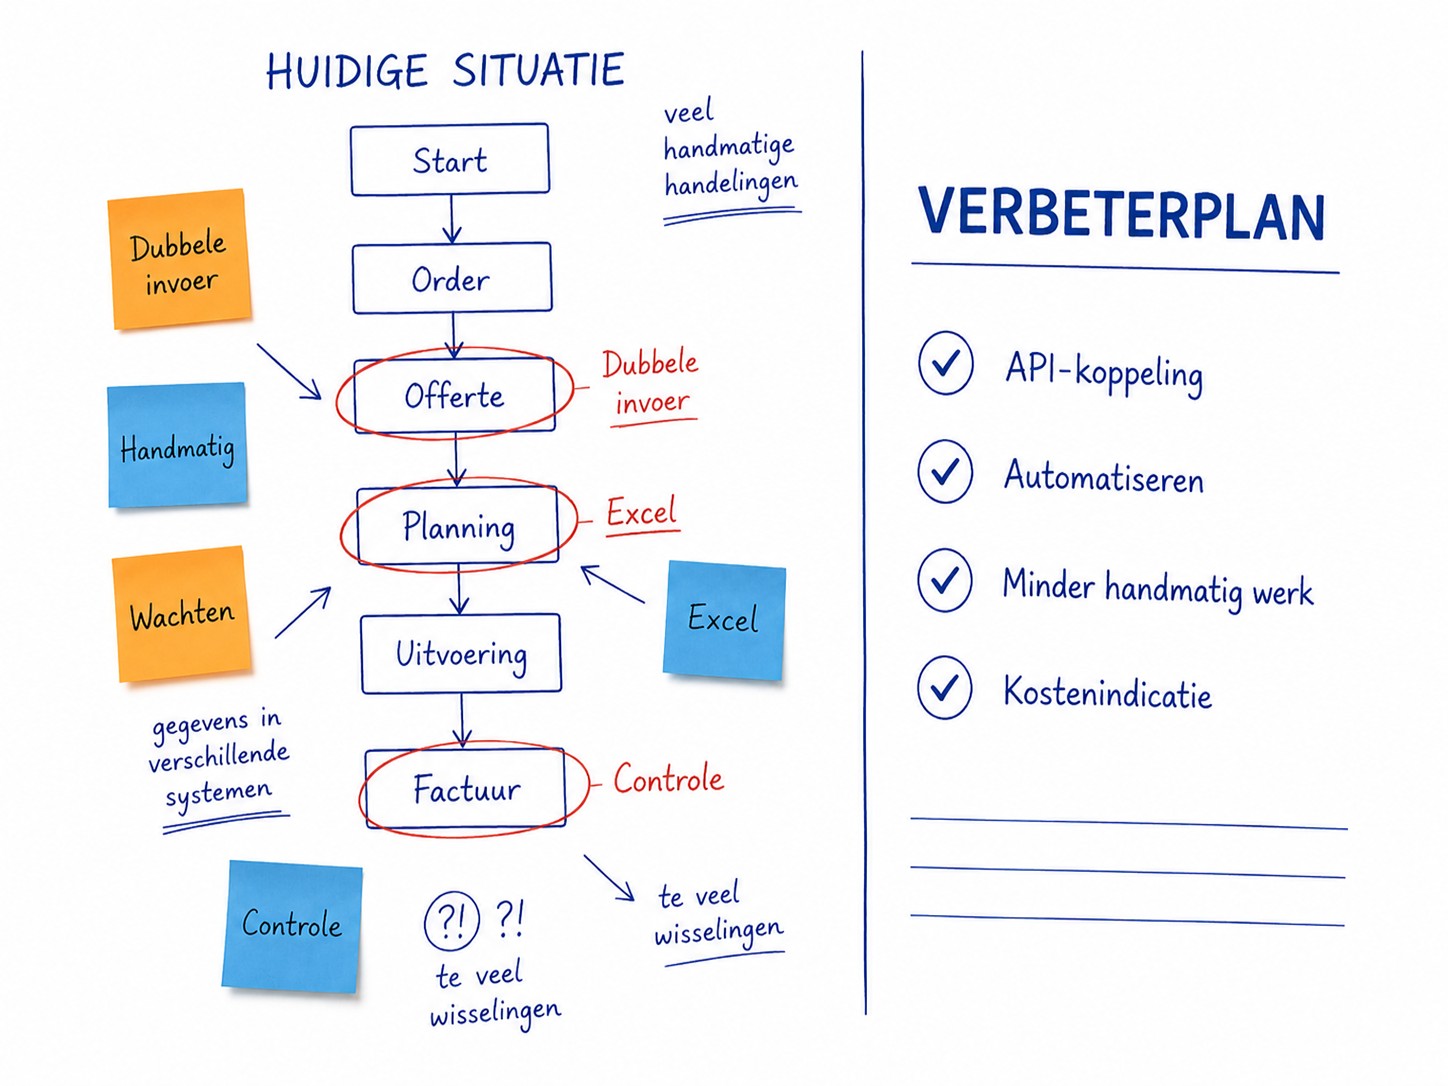 HUIDIGE SITUATIE
veel
handmatige
handelingen
Start
Dubbele
invoer
Order
Offerte
Dubbele
invoer
Handmatig
Planning
Excel
Wachten
Excel
Uitvoering
gegevens in
verschillende
systemen
Factuur
Controle
Controle
?! ?!
te veel
wisselingen
te veel
wisselingen
VERBETERPLAN
API-koppeling
Automatiseren
Minder handmatig werk
Kostenindicatie